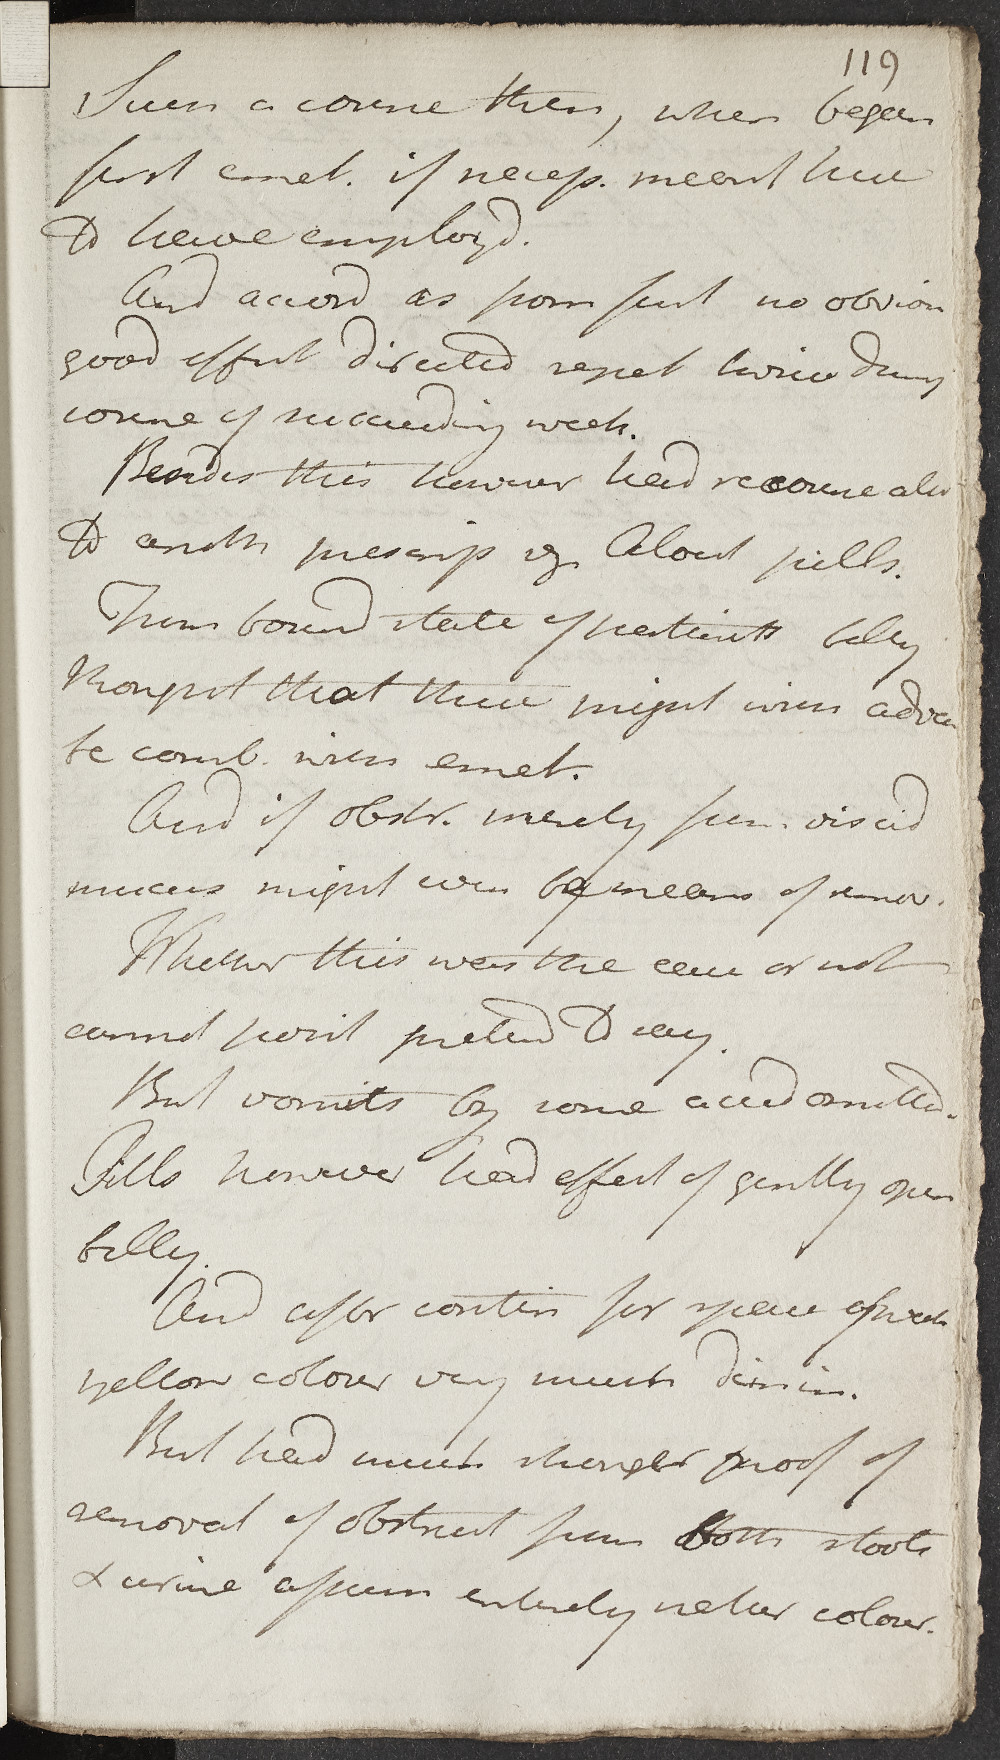 119
Such a course then, when began
first emet. if necess. meant here
to have employd.
And accord as from first no obviou
good effect directed repet twice during
course of succeeding week.
Besides this however had recourse also
to anoth prescrip vz Aloet pills.
From bound state of patients belly
thought that these might with advan
be comb. with emet.
And if obstr. merely from viscid
mucus might even be means of remov.
Whether this was the case or not
cannot posit pretend to say.
But vomits by some accid omitted.
Pills however had effect of gently open
belly.
And after contin for space of week
yellow colour very much dimin.
But had much stronger proof of
removal of obstruct from Both stools
& urine assum entirely natur colour.